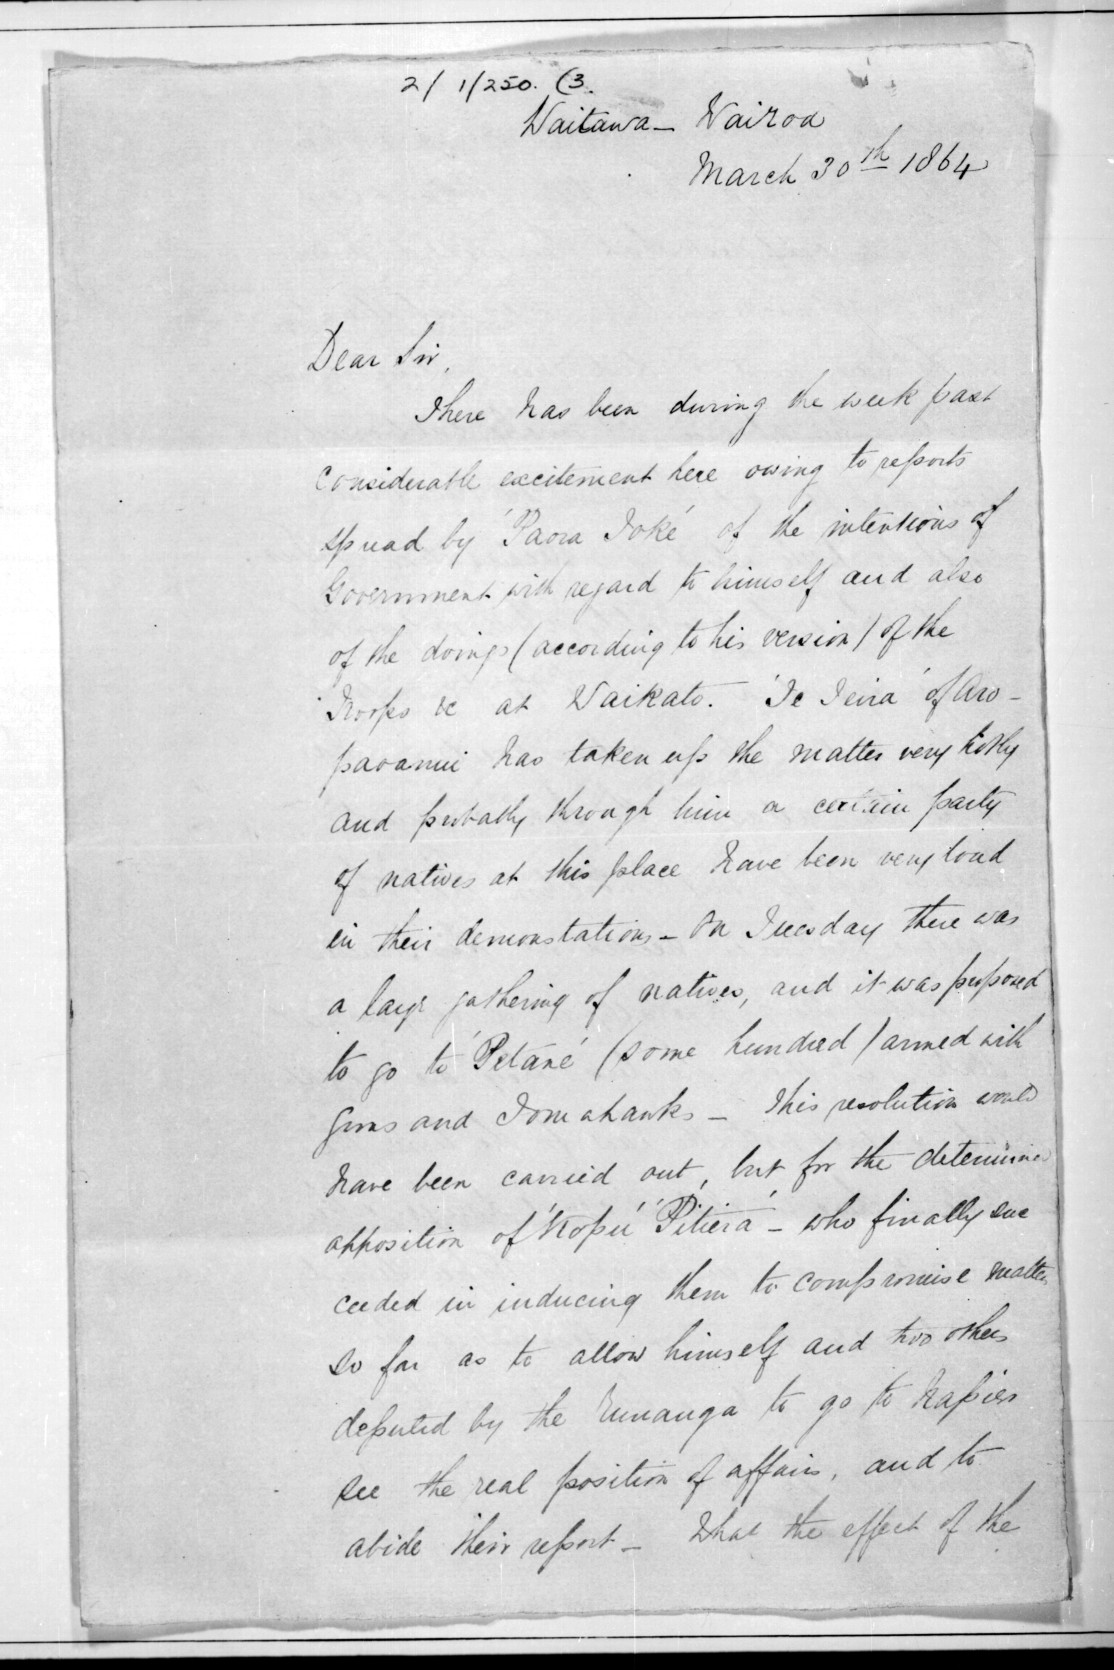 2/ 1/250. (3.
Waitawa - Wairoa
March 30th 1864
Dear Sir,
There has been during the week past
considerable excitement here owing to reports
spread by 'Paora Toké' of the intentions of
Government with regard to himself and also
of the doings (according to his version) of the
Troops &c at Waikato. 'Te Teira' of Aro-
paoanui has taken up the matter very hotly
and probably through him a certain party
of natives at this place have been very loud
in their demonstations - On Tuesday there was
a large gathering of natives, and it was proposed
to go to 'Petané' (some hundred) armed with
guns and Tomahawks - This resolution would
have been carried out, but for the determined
opposition of 'Kopú' 'Pitiera' - who finally suc
ceeded in inducing them to compromise matters
so far as to allow himself and two others
deputed by the Runanga to go to Napier
see the real position of affairs, and to
abide their report - What the effect of the